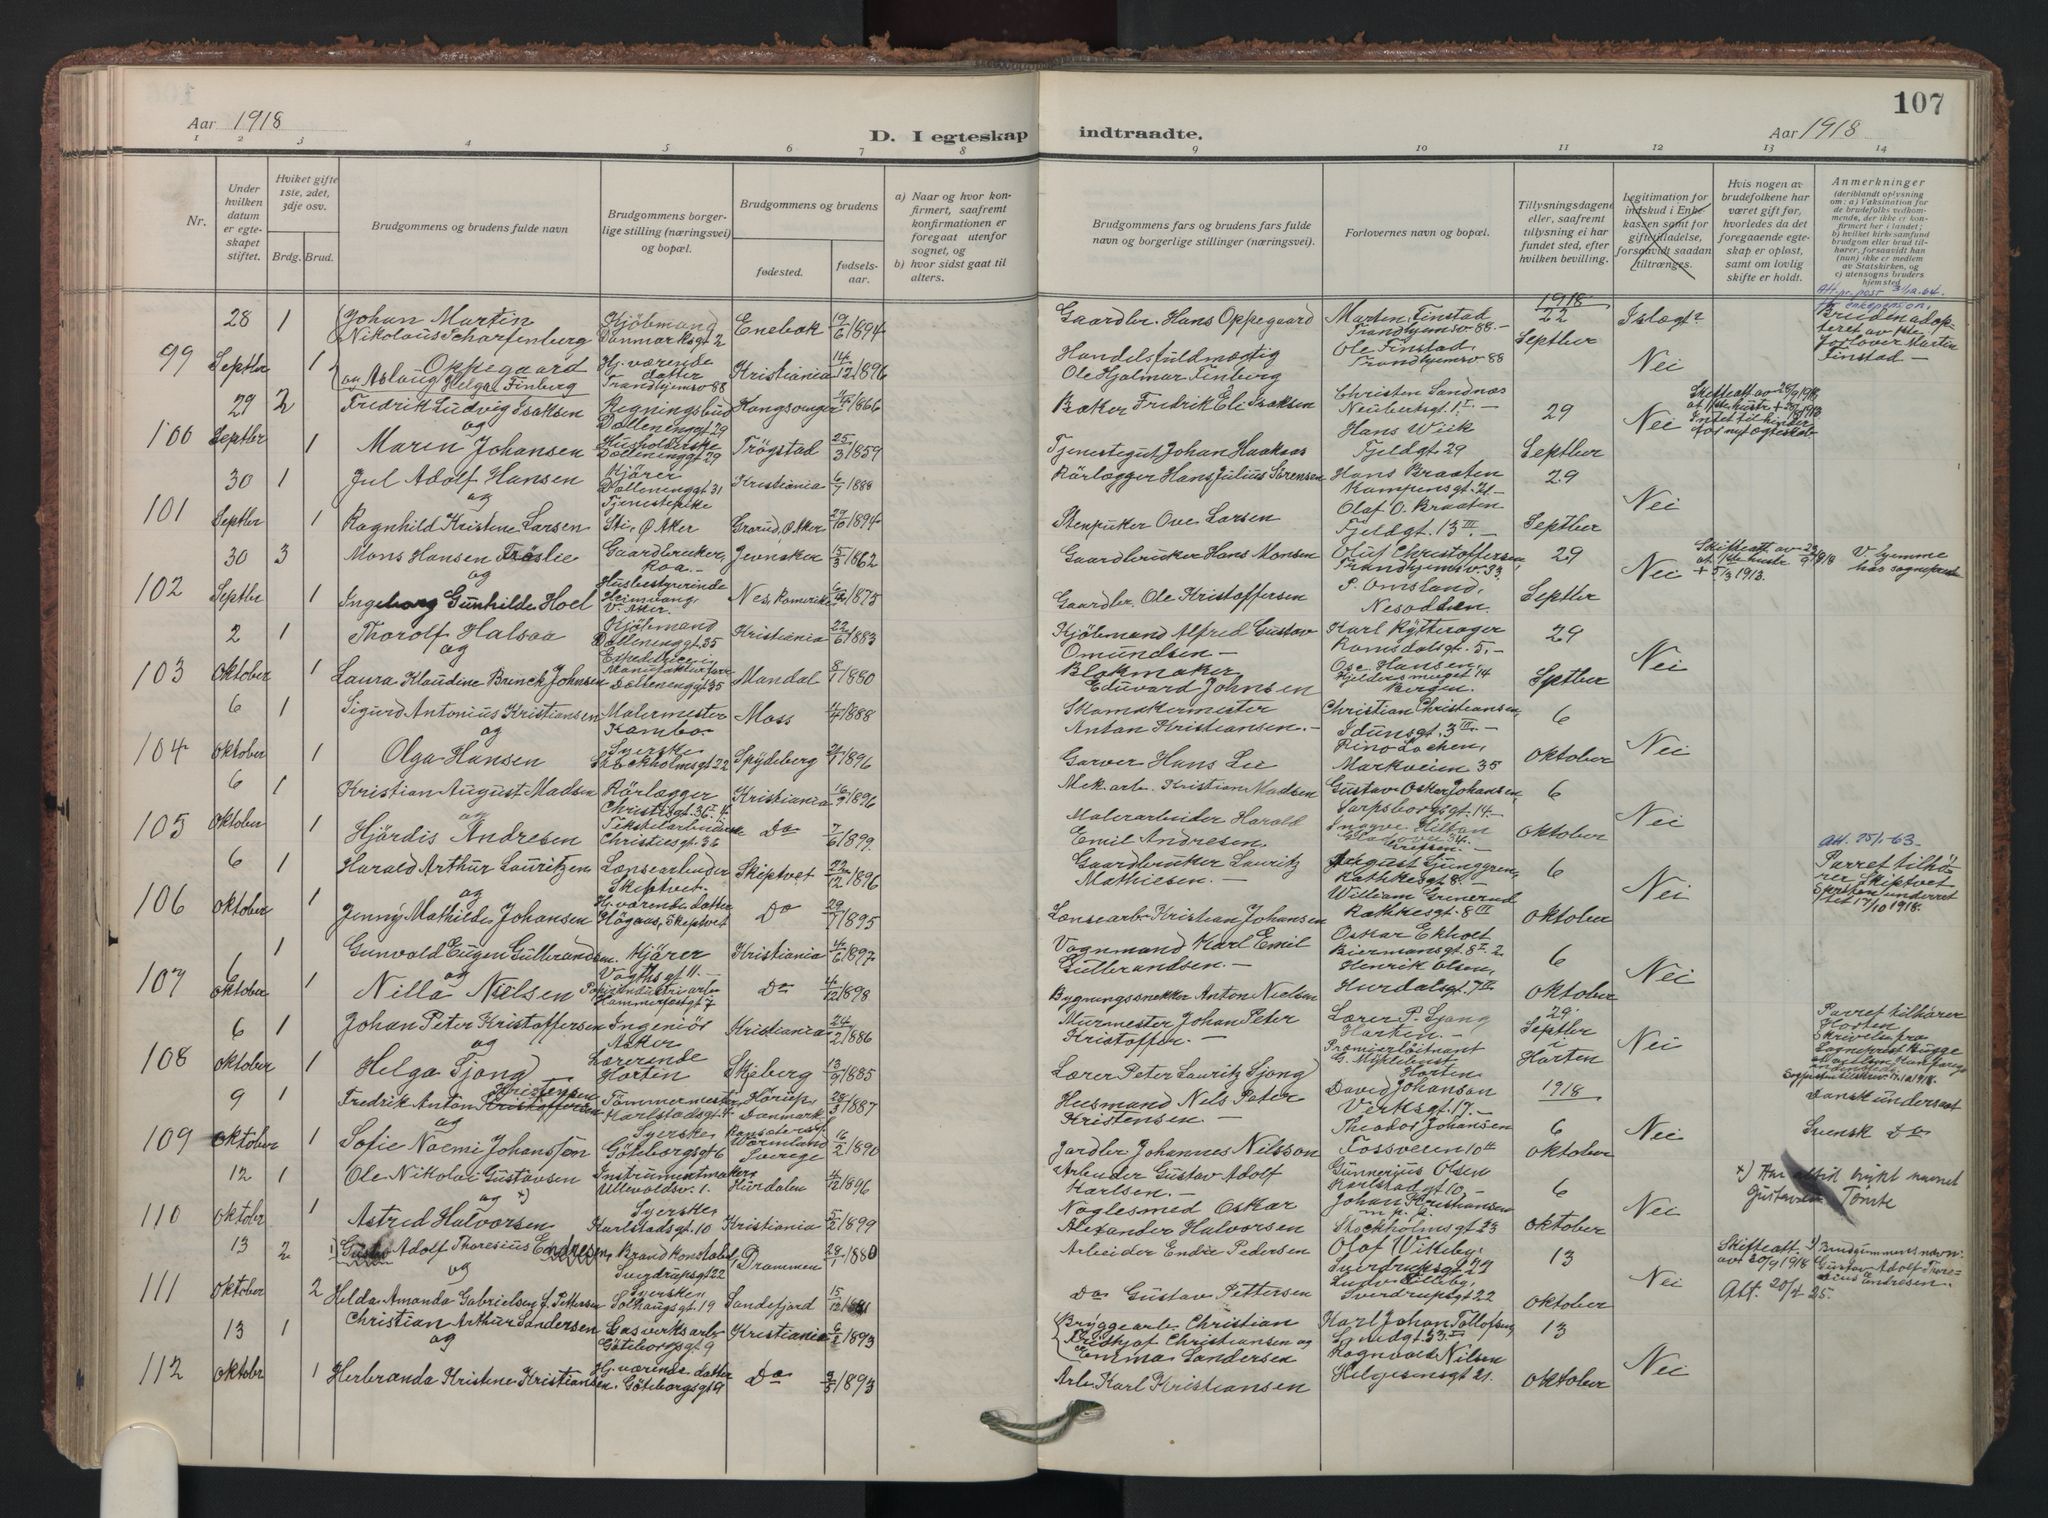 107
Aar 1918
D. I egteskap
indtraadte.
Aar 1918
1 2 3 4 5 6 7 8
9 10 11 12 13 14
Nr.
Under
hvilken
datum
er egte-
skapet
stiftet.
Hviket gifte
1ste, 2det,
3dje osv.
Brdg. Brud.
Brudgommens og brudens fulde navn
Brudgommens borger-
lige stilling (næringsvei)
og bopæl.
Brudgommens og brudens
fødested.
fødsels-
aar.
a) Naar og hvor kon-
firmert, saafremt
konfirmationen er
foregaat utenfor
sognet, og
b) hvor sidst gaat til
alters.
Brudgommens fars og brudens fars fulde
navn og borgerlige stillinger (næringsvei).
Forlovernes navn og bopæl.
Tillysningsdagene
eller, saafremt
tillysning ei har
fundet sted, efter
hvilken bevilling.
Legitimation for
indskud i Enke-
kassen samt for
giftetilladelse,
forsaavidt saadan
tiltrænges.
Hvis nogen av
brudefolkene har
været gift før,
hvorledes da det
foregaaende egte-
skap er opløst,
samt om lovlig
skifte er holdt.
Anmerkninger
(deriblandt oplysning
om: a) Vaksination for
de brudefolks vedkom-
mende, der ikke er kon-
firmert her i landet;
b) hvilket kirkesamfund
brudgom eller brud til-
hører, forsaavidt han
(hun) ikke er medlem
av Statskirken, og
c) utensogns bruders
hjemsted
99
28 Septber 1 1
Johan Martin
Nikolaus Scharffenberg
Oppegaard
og Aslaug Helga Finberg
Kjöbmand
Danmarksgt 2
Hj. værende
datter
Trondhjemsv 88
Enebak 19/6 1894
Kristiania 14/12 1896
Gaardbr. Hans Oppegaard
Handelsfuldmægtig
Ole Hjalmar Finberg
Marten Finstad
Trondhjemsv 88
Ole Finstad
Trondhjemsv 88
1918
22
Septber
Nei
Bruden adop-
teret av 1ste
forlover Martin
Finstad
100
29 Septber 2 1
Fredrik Ludvig Isaksen
og
Maren Johansen
Dælenenggt 29
Husholderske
Dælenenggt 29
Kongsvinger 1866
Trögstad 25/3 1859
Bæker Fredrik Eli Isaksen
Tjenestegut Johan Haakaas
Christen Sandnæs
Neubertsgt. 1 I
Hans Wiik
Fjeldgt. 29
29
Septber
Nei
101
30 Septber 1 1
Jul Adolf Hansen
og
Ragnhild Kristene Larsen
Kjörer
Dælenenggt 31
Tjenestepike
Sti, Ö. Aker
Kristiania 6/7 1888
Grorud, Ö. Aker 1894
Rörlægger Hans Julius Sörensen
Stenpukker Ove Larsen
Hans Braaten
Kampensgt. 21
Olaf O. Braaten
Fjeldgt. 13 III
29
Septber
Nei
102
30 Septber 3 1
Mons Hansen Fröslie
og
Ingeborg Gunhilde Hoel
Gaardbruker,
Roa.
Husbestyrerinde
V. Aker
Jevnaker 15/3 1862
Nes, Romerike 1875
Gaardbruker Hans Monsen
Gaardbr. Ole Kristoffersen
Oluf Christoffersen
Trondhjemsv. 33
P. Omsland,
Nesodden.
29
Septber
Nei
Skifteatt av
1ste hustr
+ 5/3 1913.
V. hjemme
hos sogneprest
103
2 Oktober 1 1
Thorolf Halsaa
og
Laura Klaudine Brinck Johnsen
Kjöbmand
Dælenenggt 35
Dælenenggt 35
Kristiania 22/6 1883
Mandal 8/1 1880
Kjöbmand Alfred Gustav
Omundsen
Blokmaker
Eduvard Johnsen
Karl Rytterager
Romsdalsgt. 5.
Ose Hansen,
Bergen.
29
Septber
Nei
104
6 Oktober 1 1
Sigurd Antonius Kristiansen
og
Olga Hansen
Malermester
Kambo.
Syerske
Stockholmsgt 22
Moss 1888
Spydeberg 1896
Skomakermester
Anton Kristiansen.
Garver Hans Lie
Christian Christiansen,
Idunsgt. 3 III
Rino Lochen,
Markveien 35
6
Oktober
Nei
105
6 Oktober 1 1
Kristian August Madsen
og
Hjördis Andresen
Rörlægger
Christiesgt. 36
Tekstilarbeiderske
Christiesgt 36
Kristiania 16/9 1896
Do 7/6 1899.
Mek. arb. Kristian Madsen
Malerarbeider Harald
Emil Andresen
Gustav Oskar Johansen,
Sarpsborggt. 14.
6
Oktober
Nei
106
6 Oktober 1 1
Harald Arthur Lauritzen
og
Jenny Mathilde Johansen
Lensearbeider
Skiptvet.
Hj. værende datter
Högaas, Skiptvet
Skiptvet 22/12 1896
Do 29/1 1895
Gaardbruker Lauritz
Mathiesen.
Lensearb Kristian Johansen
August Ljunggren,
Rathkesgt 8.
William Grenerud
Rathkesgt. 8 III
6
Oktober
Nei
Att. 25/1-63
Parret tilhö-
rer Skiptvet
Spresten underret
tet 17/10 1918.
107
6 Oktober 1 1
Gunvald Eugen Gulbrandsen.
og
Nilla Nielsen
Kjörer
Vogtsgt 11.
Hammerfestgt 7
Kristiania 4/6 1897
Do 4/12 1898
Vognmand Karl Emil
Gulbrandsen.
Bygningssnekker Anton Nielsen
Oskar Ekholt
Biermansgt. 8 I
Henrik Olsen,
Hurdalsgt. 7 II
6
Oktober
Nei
108
6 Oktober 1 1
Johan Peter Kristoffersen
og
Helga Sjong
Ingeniör
Asker
Lærerinde
Horten
Kristiania 24/2 1886
Skjeberg 13/9 1885
Murmester Johan Peter
Kristoffer.
Lærer Peter Lauritz Sjong
Lærer P. Sjong
Horten.
Premierlöitnant
G. Myklebust
Horten
29
Septber
i
Horten
Nei
Parret tilhörer
Horten
Skrivelse fra
Sogneprest Kugge
109
9 Oktober 1 1
Fredrik Anton Kristensen
og
Sofie Noemi Johansson
Tömmermester
Karlstadsgt. 4
Syerske
Göteborggt 6
Danmark 28/3 1887
Wermland
Sverige 16/2 1890
Husmand Nels Peter
Kristensen.
Jordbr Johannes Nilsson
David Johansen
Verksgt. 17.
Theodor Johansen
Fossveien 10
1918
6
Oktober
Nei
Dansk undersaat
Svensk Do
110
12 Oktober 1 1
Ole Nikolai Gustavsen
og x)
Astrid Halvorsen
Instrumentmaker
Ullevoldsv. 1.
Syerske
Karlstadsgt. 10
Hurdalen 4/12 1896
Kristiania 5/2 1899
Arbeider Gustav Adolf
Karlsen.
Naglesmed Oskar
Alexander Halvorsen
Gunnerius Olsen
Karlstadgt 10
Johan Kristiansen
Stockholmsgt 23
6
Oktober
Nei
x) Har altid brukt navnet
Gustavsen Tömte
111
13 Oktober 2 2
1) Gustav Adolf Thoresius Endresen
og
Helda Amanda Gabrielsen f. Pettersen
Brandkonstabel,
Sverdrupsgt 22
Syerske
Solhaugsgt. 19
Drammen 28/1 1880
Sandefjord 15/12
Arbeider Endre Pedersen
Do Gustav Pettersen
Olaf Wikeby,
Sverdrupsgt 22
Sverdrupsgt 22
13
Oktober
Nei
Skifteatt.
av 30/9 1918
1) Brudgummens navn:
Gustav Adolf Thore-
sius Andresen.
Att. 20/4 25.
112
13 Oktober 1 1
Christian Arthur Sandersen
og
Herbranda Kristene Kristiansen
Gasverksarb
Göteborggt 9
Hj. værende datter
Göteborgsgt 9
Kristiania 1893
Do 1893
Bryggearb Christian
Fridtjof Christiansen og
Emma Sandersen
Arb Karl Kristiansen
Karl Johan Tollofsen,
Rognvald Nilsen
Helgesensgt 21.
13
Oktober
Nei